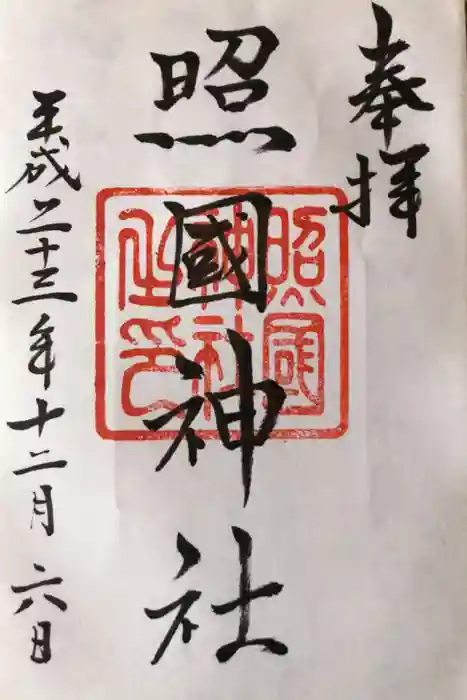 奉拝
照國神社
照國神社之印
平成二十三年十二月六日